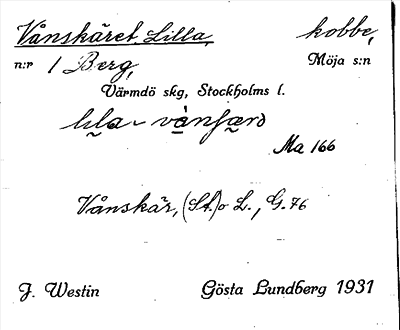 Vånskäret, Lilla, kobbe,
n:r 1 Berg, Möja s:n
Värmdö skg, Stockholms l.
lila - vånfærd
Ma 166
Vånskär, (St.) o L., G. 76
J. Westin Gösta Lundberg 1931